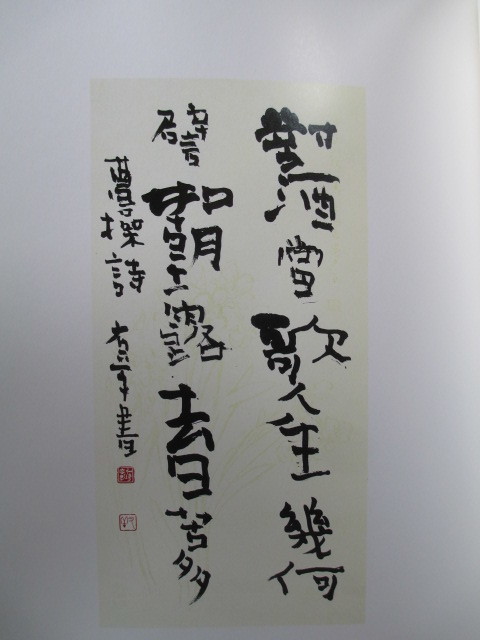 對酒當歌人生幾何
譬如朝露去日苦多
曹操詩 書